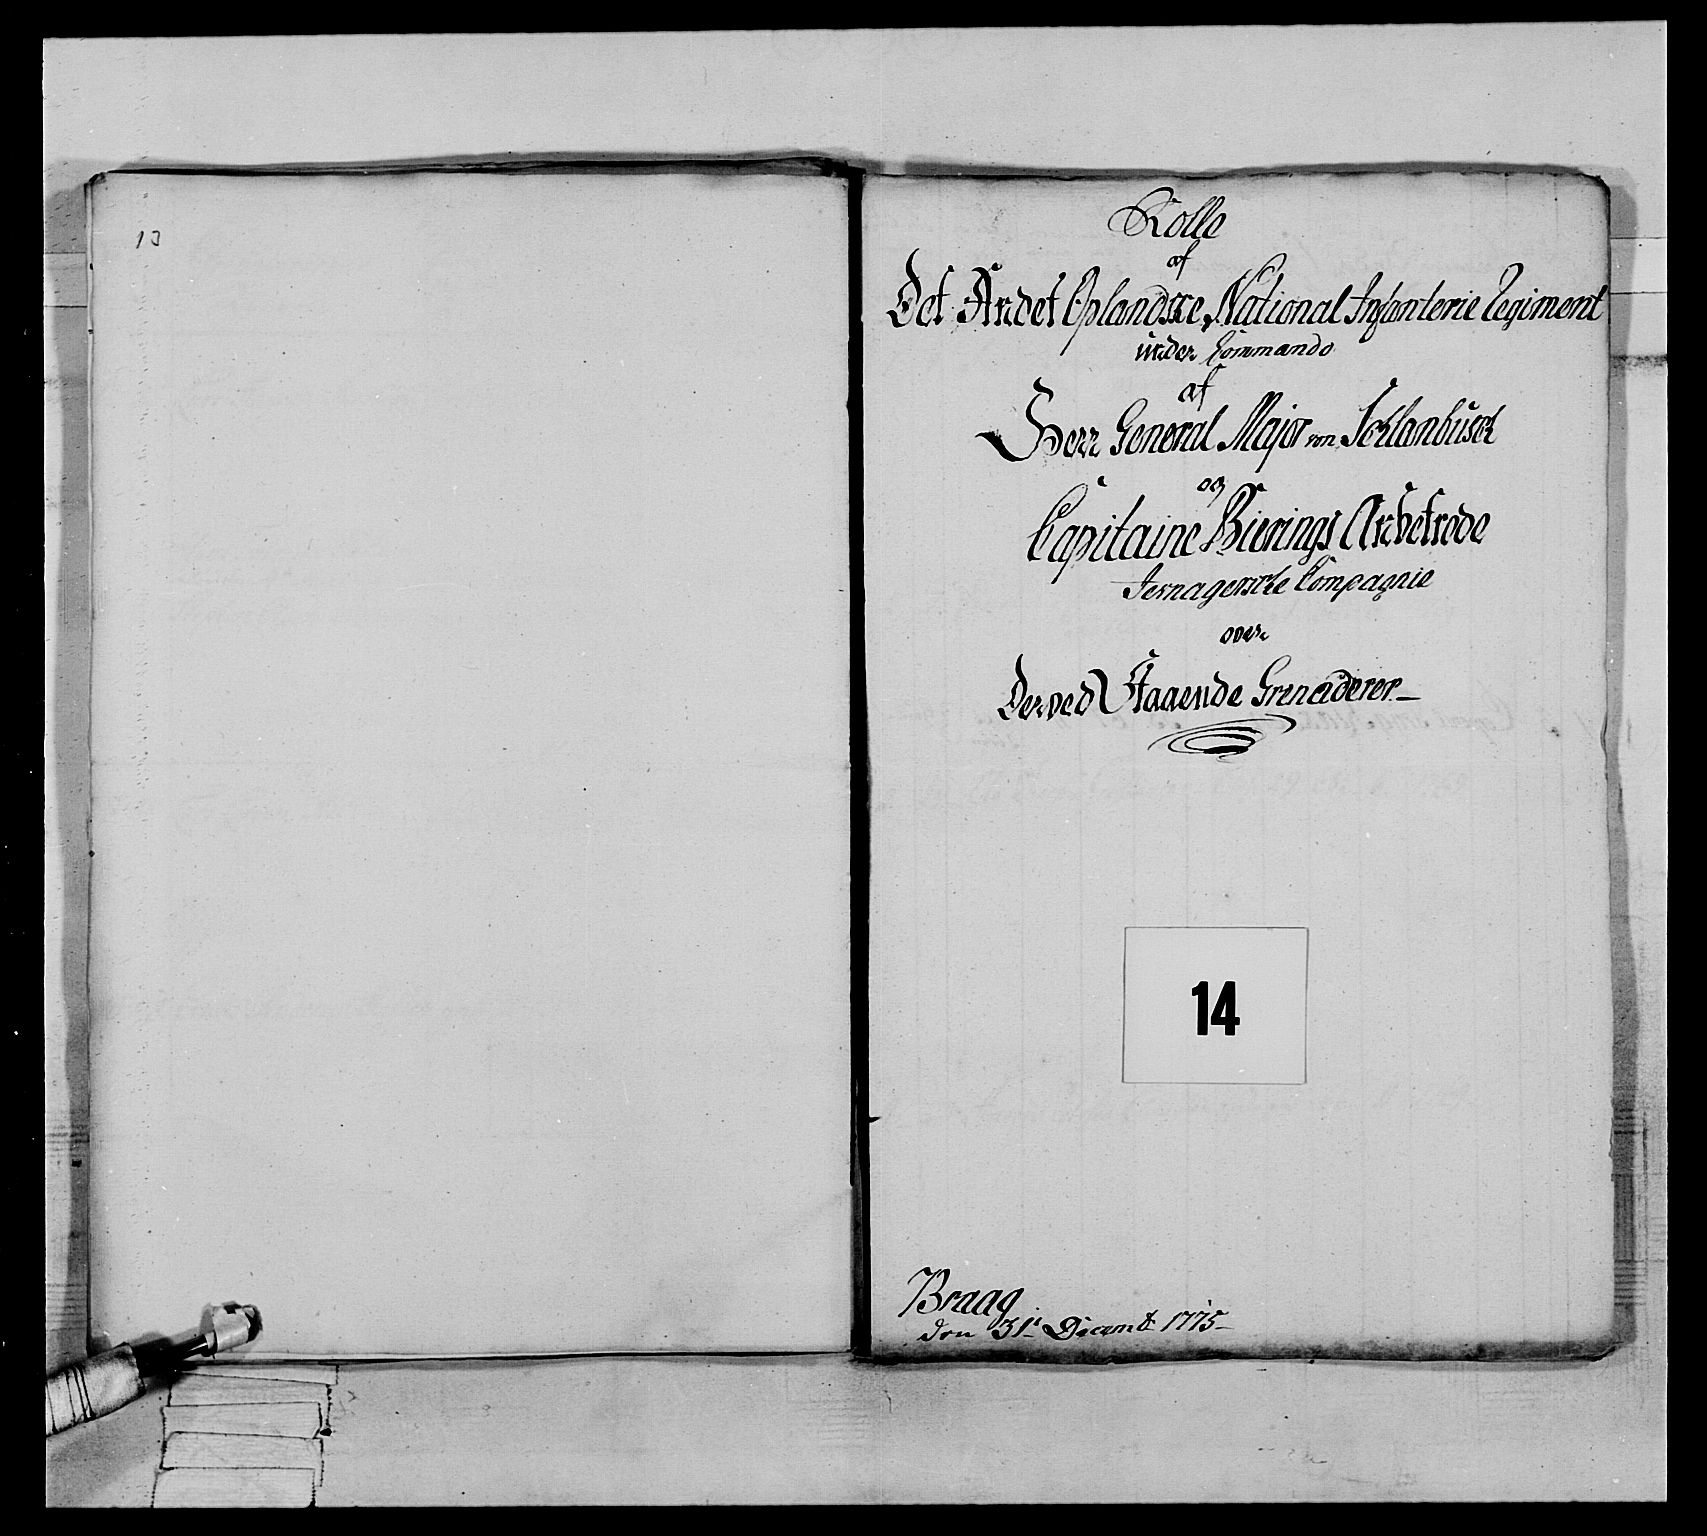 13
Rolle
af
Det Andet Oplandske National Infanterie Regiment
under Commando
af
Herr General Major von Schlanbusch
og
Capitaine Bierings Anbetrode
Jernagerske Compagnie
over
Derved Staaende Grenaderer
14
Braag
den 31t Decemb 1775